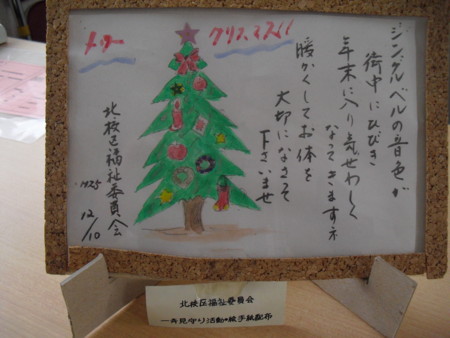 メリー クリスマス!!
ジングルベルの音色が
街中にひびき
年末に入り気ぜわしく
なってきますネ
暖かくしてお体を
大切になさって
下さいませ
北校区福祉委員会
H25
12/10
北校区福祉委員会
一斉見守り活動の絵手紙配布